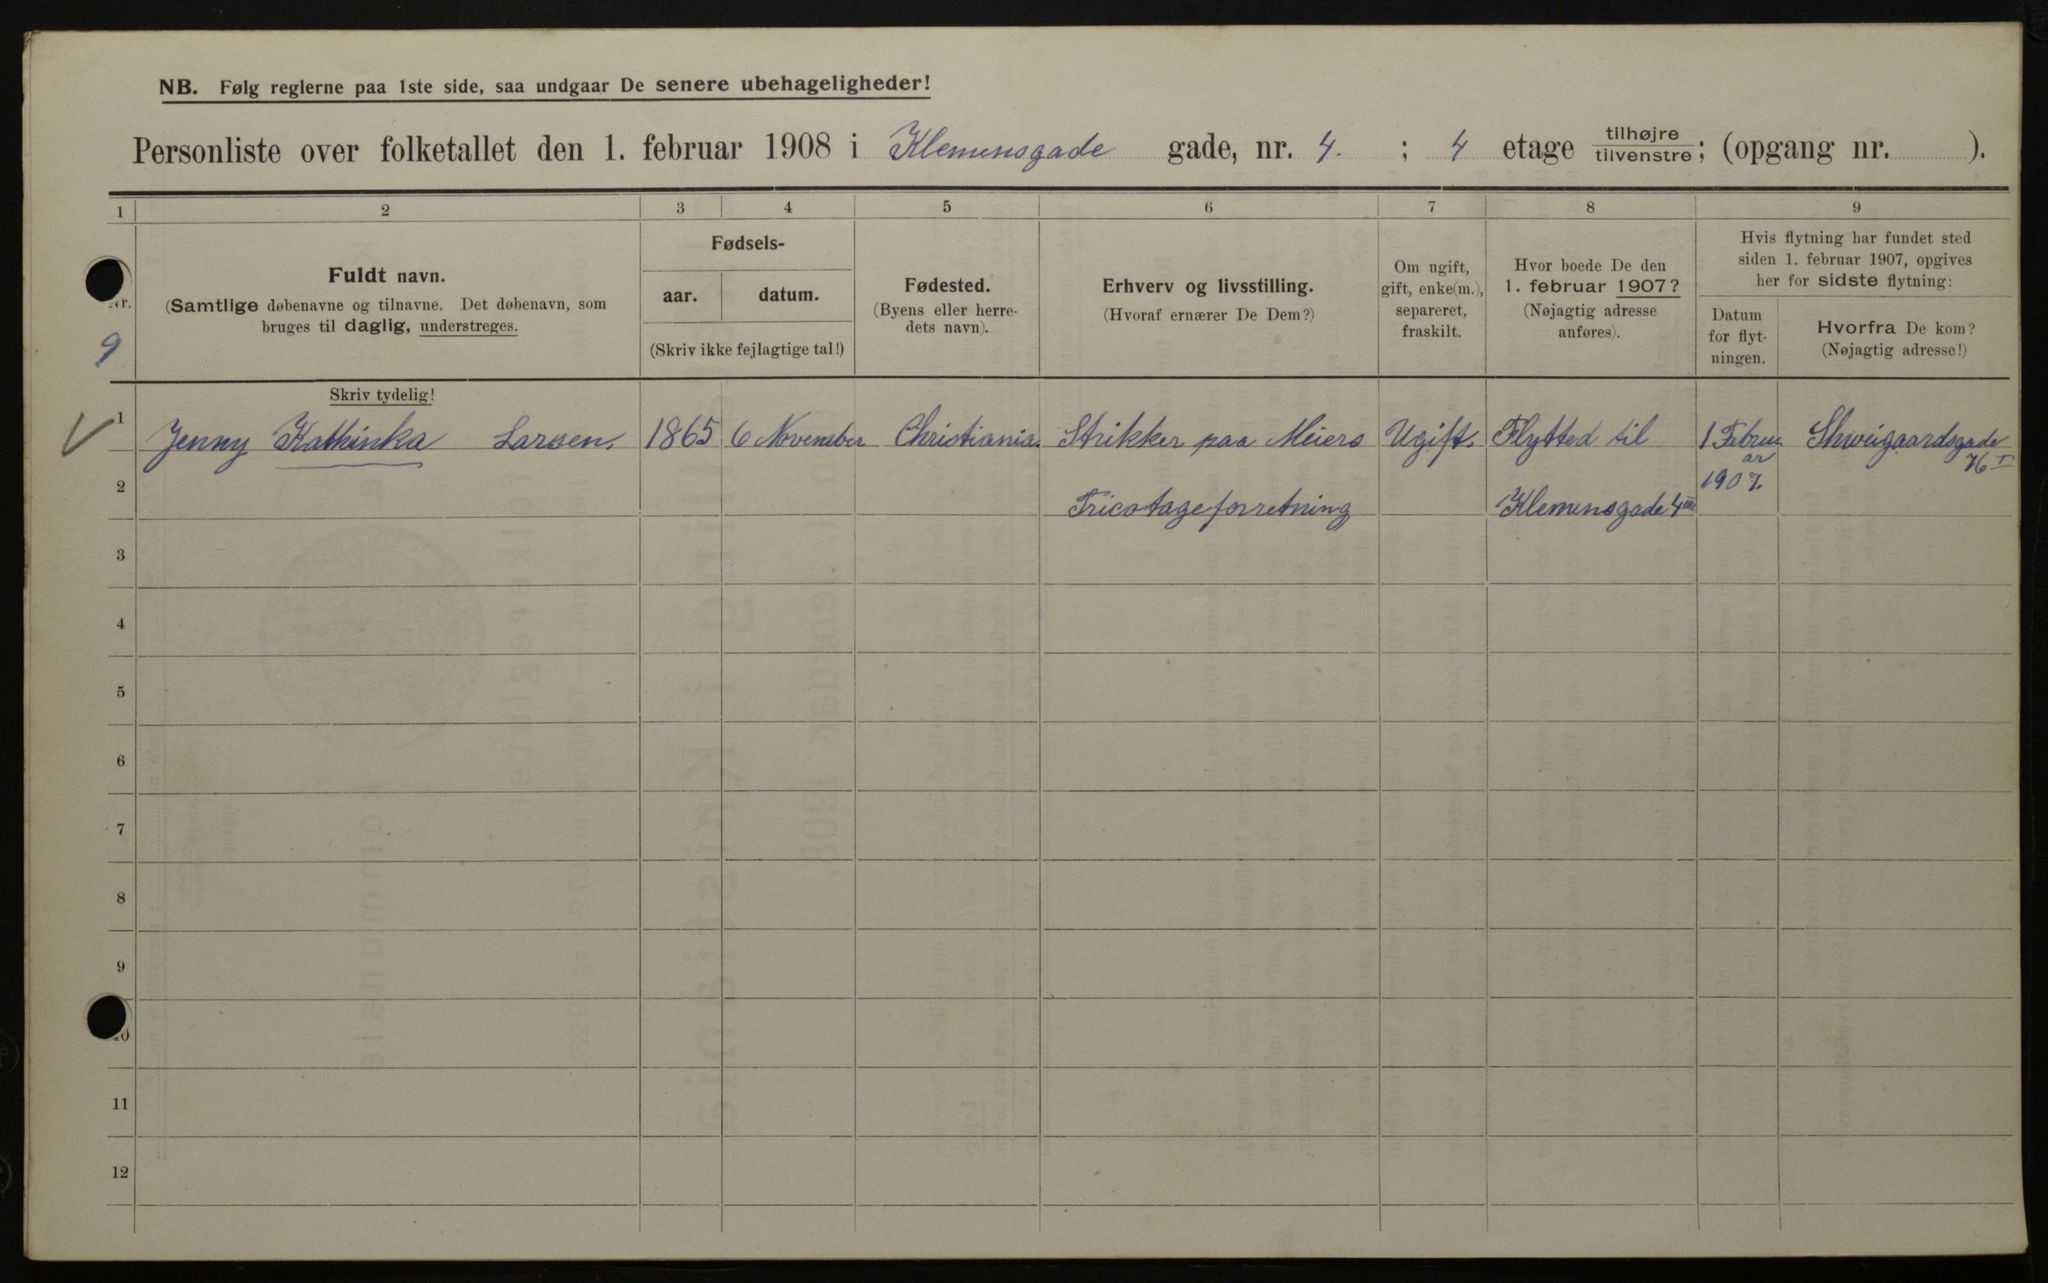 NB. Følg reglerne paa 1ste side, saa undgaar De senere ubehageligheder!
Personliste over folketallet den 1. februar 1908 i Klemensgade gade, nr. 4. ; 4 etage tilhøjre/tilvenstre; (opgang nr. ).
1 2 3 4 5 6 7 8 9
Nr.
9
Fuldt navn.
(Samtlige døbenavne og tilnavne. Det døbenavn, som
bruges til daglig, understreges.
Skriv tydelig!
Fødsels-
aar. datum.
(Skriv ikke fejlagtige tal!)
Fødested.
(Byens eller herre-
dets navn).
Erhverv og livsstilling.
(Hvoraf ernærer De Dem?)
Om ugift,
gift, enke(m.),
separeret,
fraskilt.
Hvor boede De den
1. februar 1907?
(Nøjagtig adresse
anføres).
Hvis flytning har fundet sted
siden 1. februar 1907, opgives
her for sidste flytning:
Datum
for flyt-
ningen.
Hvorfra De kom?
(Nøjagtig adresse!)
1 Jenny Kathinka Larsen. 1865 6 November Christiania. Strikker paa Meiers Ugift. Flytted til 1 Febru Shweigaardsgade
ar 76 I
2 Tricotageforretning Klemensgade 4 III 1907.
3
4
5
6
7
8
9
10
11
12